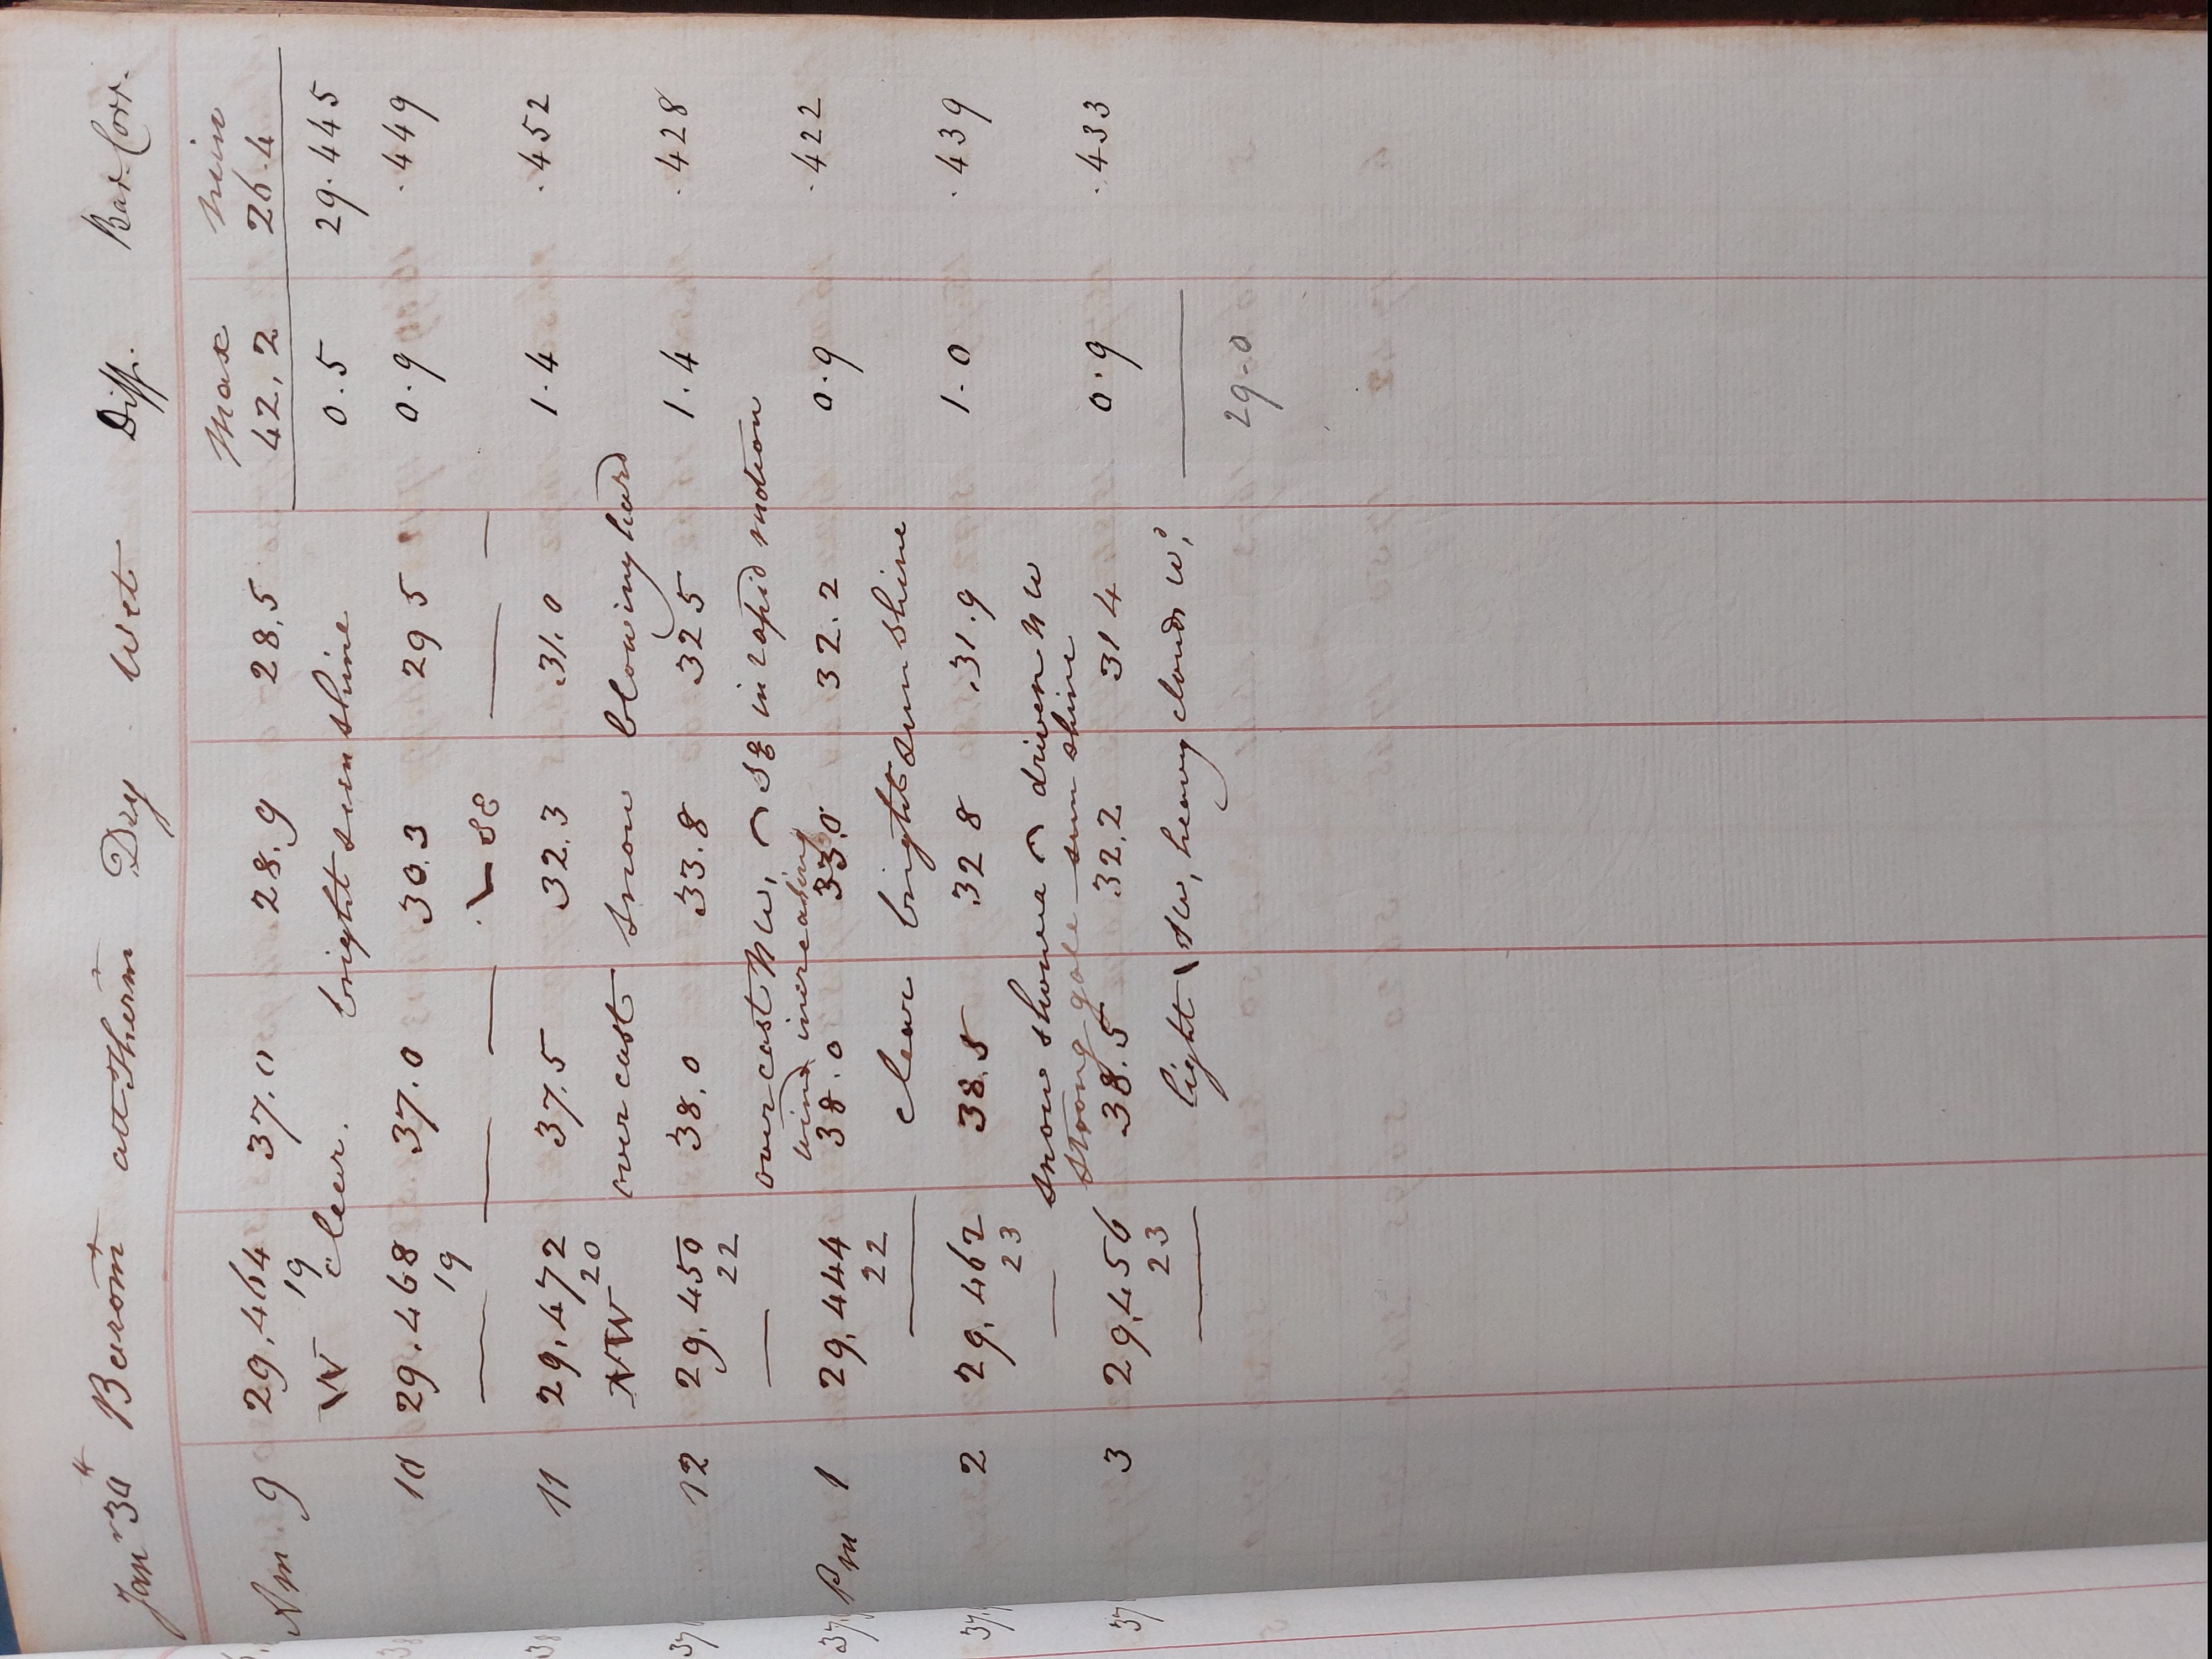 Janr 30th Baromr att Therm Dry Wet Diff. Bar. Corr.
max min
Am 9 29.464 37.0 28.9 28.5 42.2 26.4
19
W clear. bright sun shine 0.5 29.445
10 29.468 37.0 30.3 29 5 0.9 .449
19
— — — \— SE — —
11 29.472 37.5 32.3 31.0 1.4 .452
20
NW over cast snow blowing hard
12 29.450 38.0 33.8 32 5 1.4 .428
22
— over cast NW, ⌒ SE in rapid motion
wind increasing
Pm 1 29.444 38.0 33.0 32.2 0.9 .422
22
— clear bright sun shine
2 29.462 38.5 32 8 31.9 1.0 .439
23
— snow showers ⌒ driven NW
strong gale — sun shine
3 29.456 38.5 32.2 31 4 0.9 .433
23
— light \ NW, heavy clouds Wd,
29.0